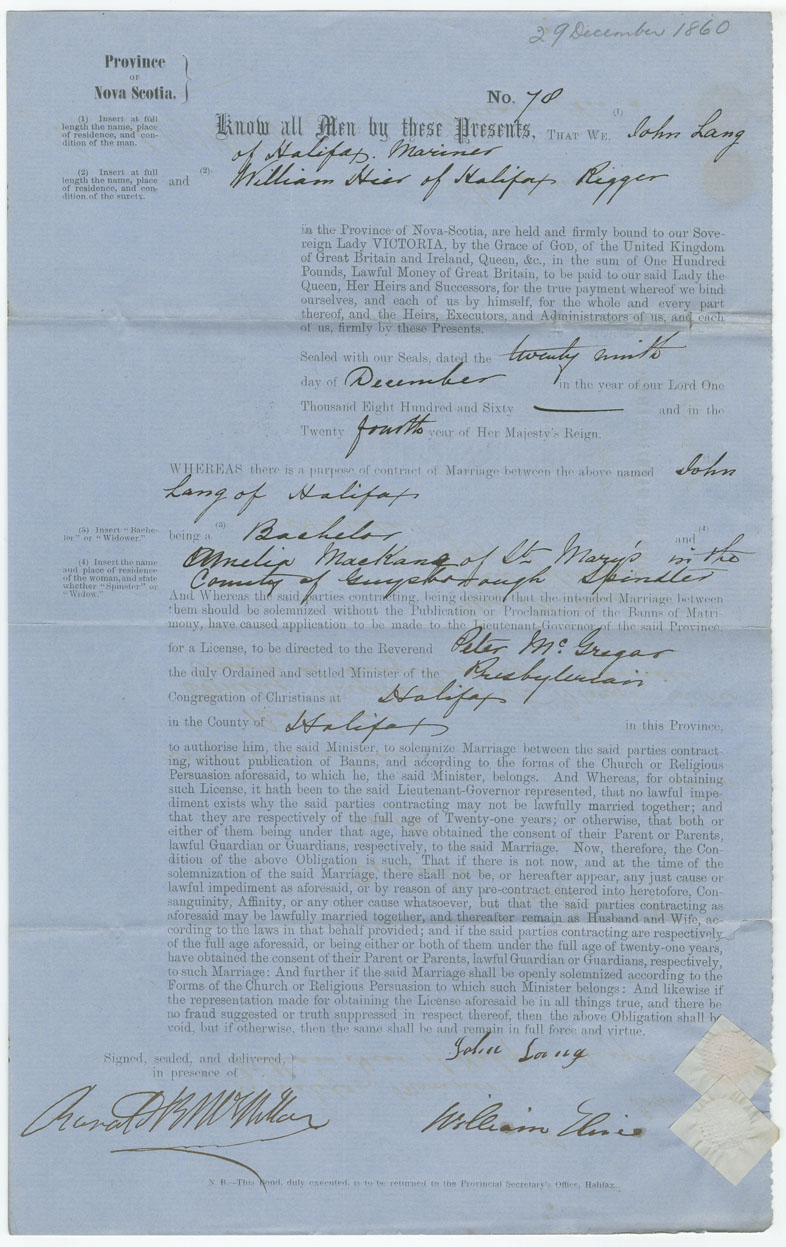 29 December 1860
Province
OF
Nova Scotia.
No. 78
(1) Insert at full
length the name, place
of residence, and con-
dition of the man.
Know all Men by these Presents, THAT WE, (1) John Lang
of Halifax. Mariner
(2) Insert at full
length the name, place
of residence, and con-
dition of the surety.
and (2) William Hier of Halifax Rigger
in the Province of Nova-Scotia, are held and firmly bound to our Sove-
reign Lady VICTORIA, by the Grace of GOD, of the United Kingdom
of Great Britain and Ireland, Queen, &c., in the sum of One Hundred
Pounds, Lawful Money of Great Britain, to be paid to our said Lady the
Queen, Her Heirs and Successors, for the true payment whereof we bind
ourselves, and each of us by himself, for the whole and every part
thereof, and the Heirs, Executors, and Administrators of us, and each
of us, firmly by these Presents.
Sealed with our Seals, dated the twenty ninth
day of December in the year of our Lord One
Thousand Eight Hundred and Sixty — and in the
Twenty fourth year of Her Majesty's Reign.
WHEREAS there is a purpose of contract of Marriage between the above named John
Lang of Halifax
(3) Insert "Bache-
lor" or "Widower."
being a (3) Bachelor and (4)
(4) Insert the name
and place of residence
of the woman, and state
whether "Spinster" or
"Widow."
Amelia MacKane of St. Mary's in the
County of Guysborough Spinster
And Whereas the said parties contracting, being desirous that the intended Marriage between
them should be solemnized without the Publication or Proclamation of the Banns of Matri-
mony, have caused application to be made to the Lieutenant-Governor of the said Province
for a License, to be directed to the Reverend Peter McGregor
the duly Ordained and settled Minister of the Presbyterian
Congregation of Christians at Halifax
in the County of Halifax in this Province,
to authorise him, the said Minister, to solemnize Marriage between the said parties contract-
ing, without publication of Banns, and according to the forms of the Church or Religious
Persuasion aforesaid, to which he, the said Minister, belongs. And Whereas, for obtaining
such License, it hath been to the said Lieutenant-Governor represented, that no lawful impe-
diment exists why the said parties contracting may not be lawfully married together; and
that they are respectively of the full age of Twenty-one years; or otherwise, that both or
either of them being under that age, have obtained the consent of their Parent or Parents,
lawful Guardian or Guardians, respectively, to the said Marriage. Now, therefore, the Con-
dition of the above Obligation is such, That if there is not now, and at the time of the
solemnization of the said Marriage, there shall not be, or hereafter appear, any just cause or
lawful impediment as aforesaid, or by reason of any pre-contract entered into heretofore, Con-
sanguinity, Affinity, or any other cause whatsoever, but that the said parties contracting as
aforesaid may be lawfully married together, and thereafter remain as Husband and Wife, ac-
cording to the laws in that behalf provided; and if the said parties contracting are respectively
of the full age aforesaid, or being either or both of them under the full age of twenty-one years,
have obtained the consent of their Parent or Parents, lawful Guardian or Guardians, respectively,
to such Marriage: And further if the said Marriage shall be openly solemnized according to the
Forms of the Church or Religious Persuasion to which such Minister belongs: And likewise if
the representation made for obtaining the License aforesaid be in all things true, and there be
no fraud suggested or truth suppressed in respect thereof, then the above Obligation shall be
void, but if otherwise, then the same shall be and remain in full force and virtue.
Signed, sealed, and delivered,
in presence of
John Lang
William
N. B.—This Bond, duly executed, is to be returned to the Provincial Secretary's Office, Halifax.